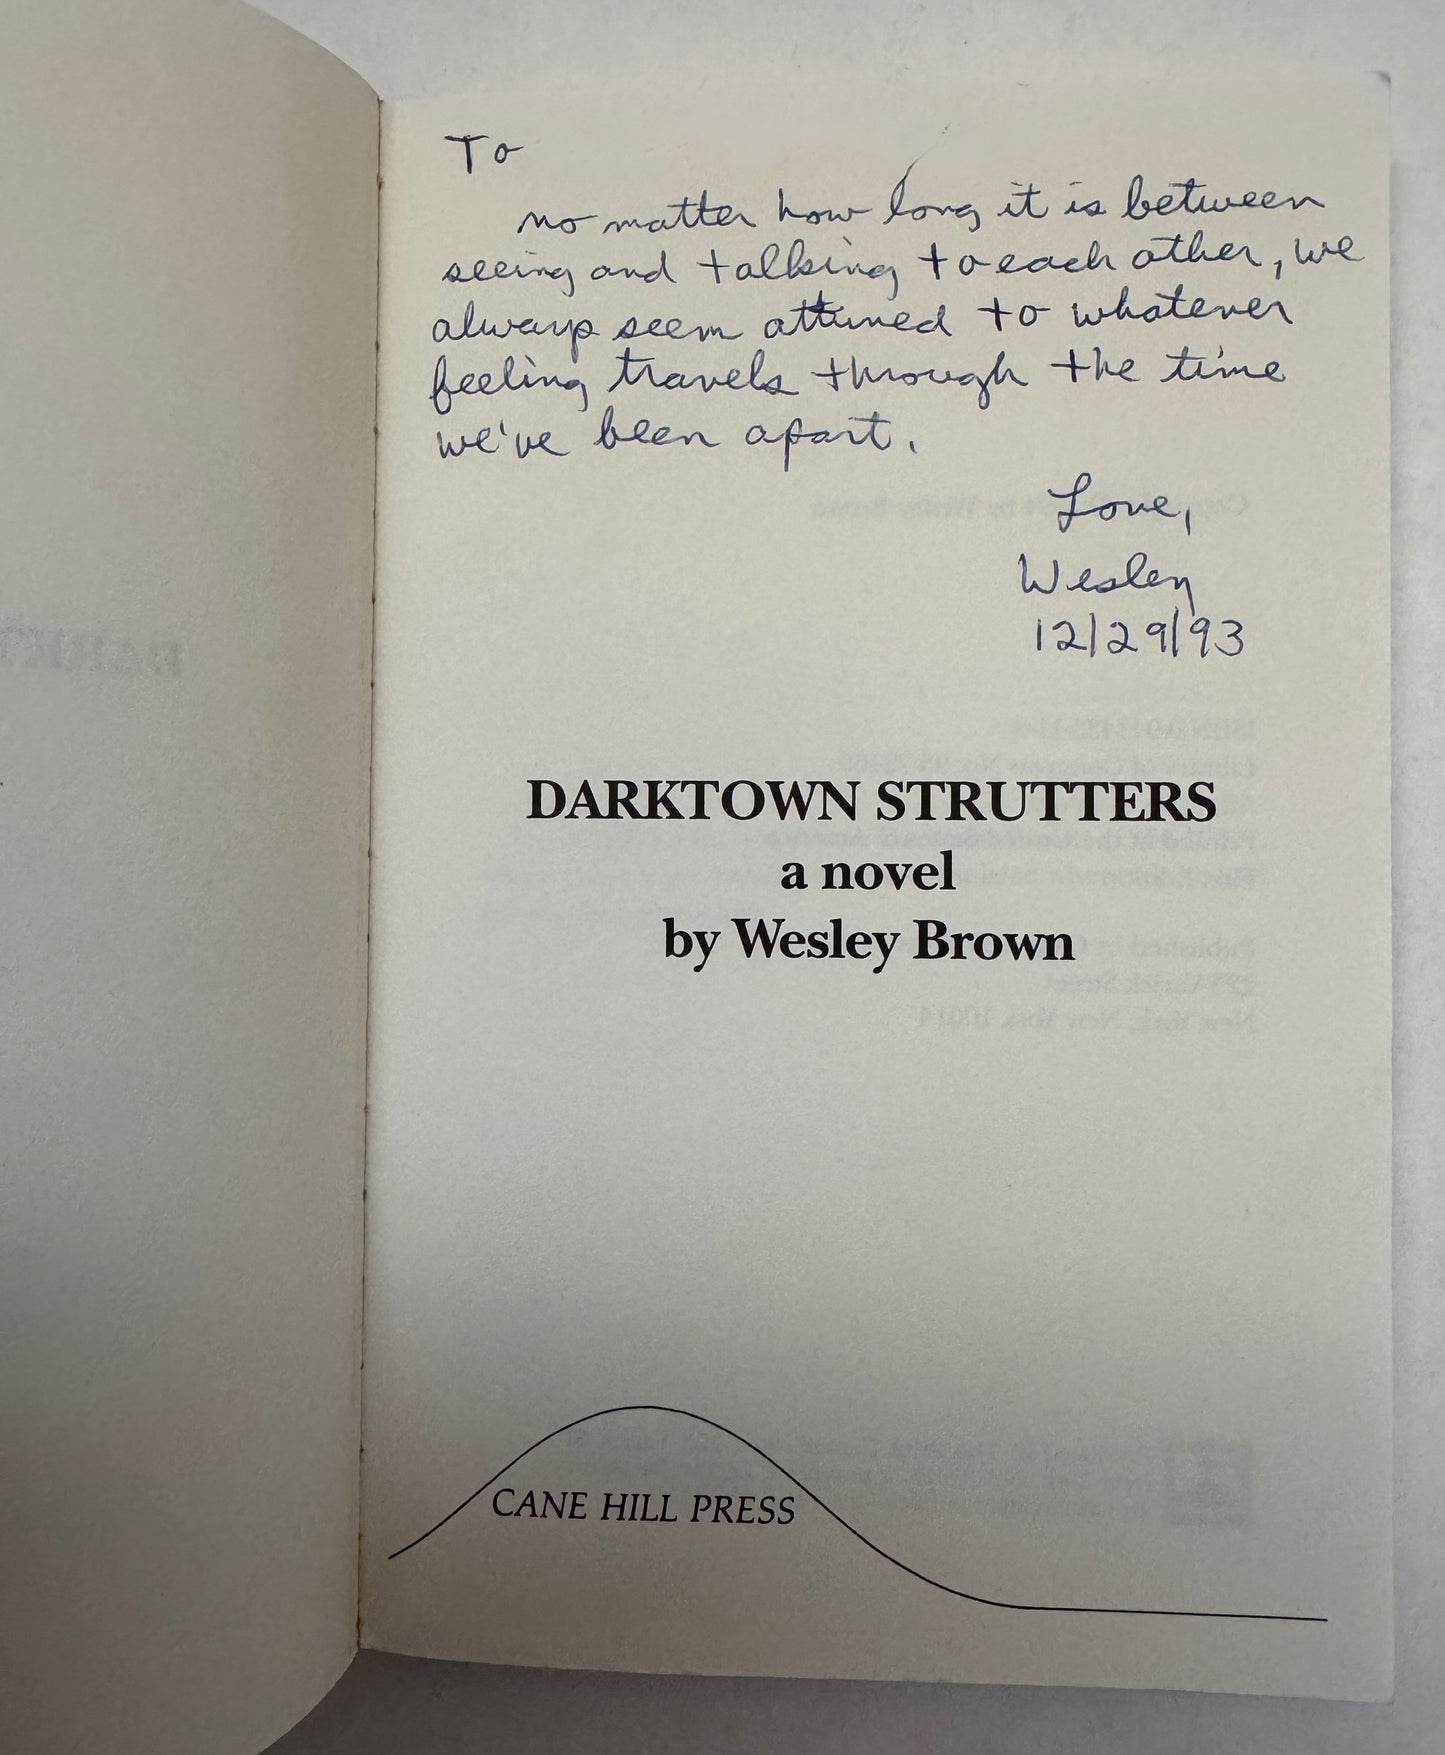 To
no matter how long it is between
seeing and talking to each other, we
always seem attuned to whatever
feeling travels through the time
we've been apart.
Love,
Wesley
12/29/93
DARKTOWN STRUTTERS
a novel
by Wesley Brown
CANE HILL PRESS